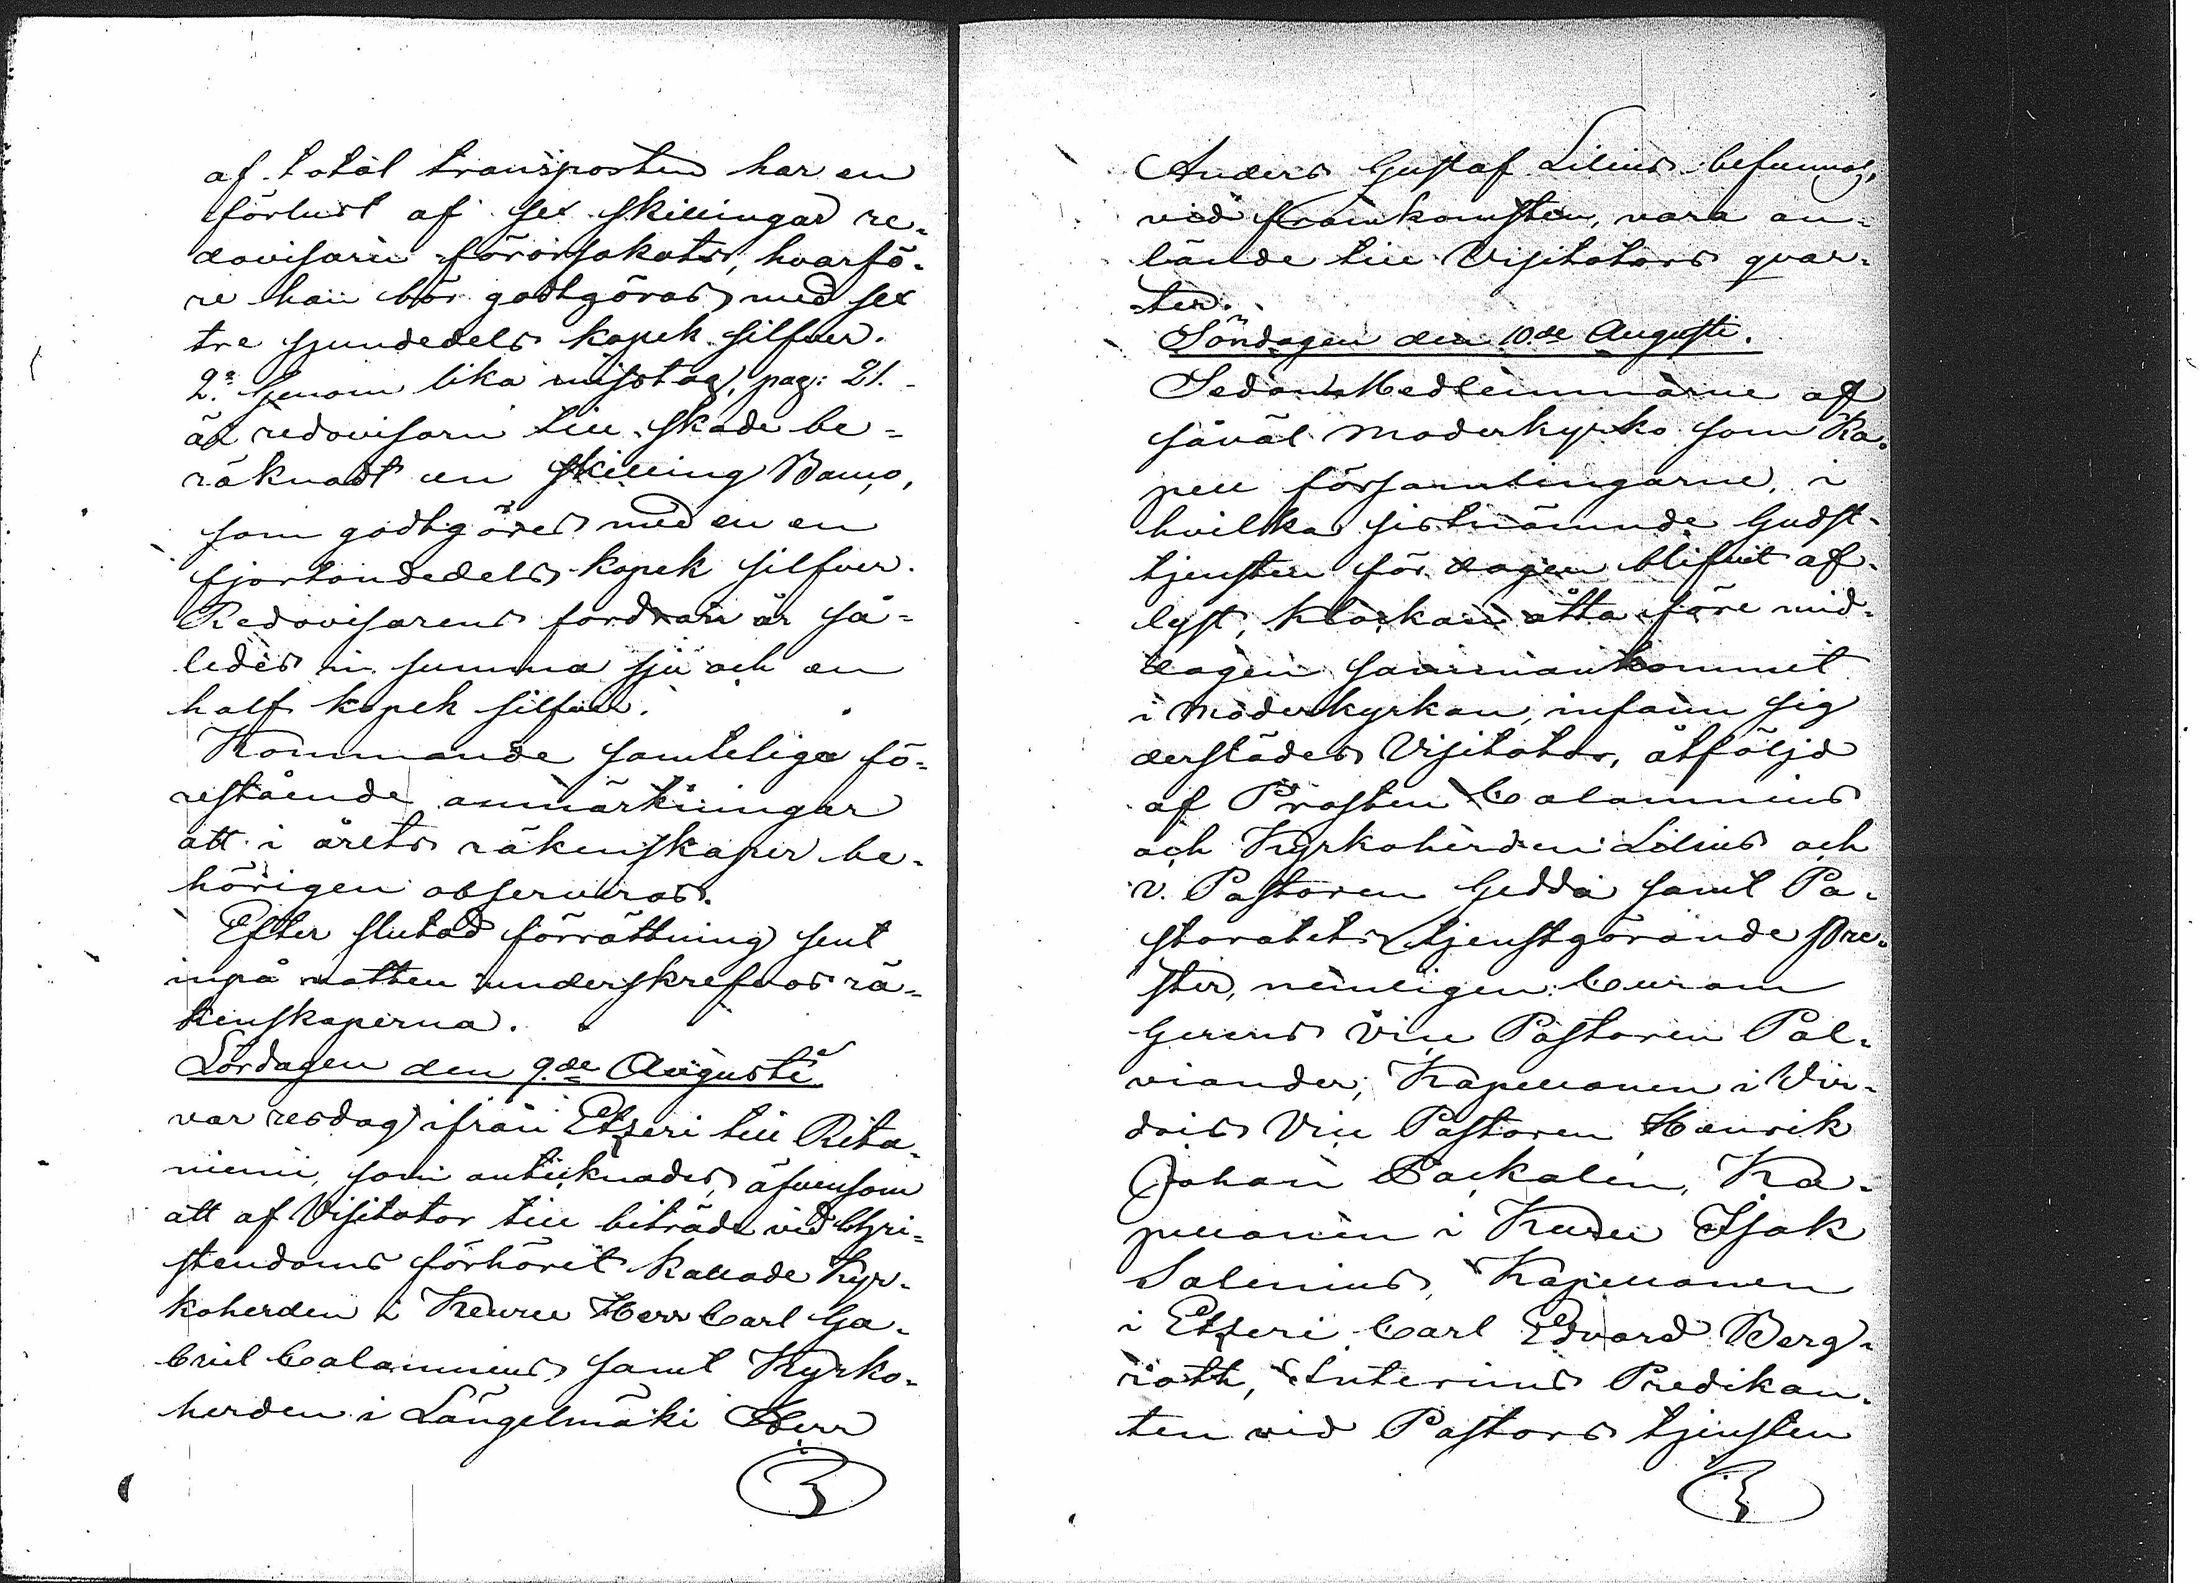 af total transporten har en
förlust af sex skillingar re-
dovisarn förorsakats, hvarfö-
re han bör godtgöras med sex
tre sjundedels kopek silfver.
2:o Genom lika misstag, pag: 21.
är redovisarn till skada be-
räknadt en skilling Banco,
som godtgöres med en en
fjortondedels kopek silfver.
Redovisarens fordran är så-
ledes in summa sju och en
half kopek silfver.
Kommande samteliga fö-
restående anmärkningar
att i årets räkenskaper be-
hörigen observeras.
Efter slutad förrättning sent
inpå natten underskrefvos rä-
kenskaperna.
Lördagen den 9:de Augusti
var resdag ifrån Etseri till Rita-
niemi, som antecknades, äfvensom
att af Visitator till biträde vid Chri-
stendoms förhöret kallade Kyr-
koherden i Keuru Herr Carl Ga-
briel Calamnius samt Kyrko-
herden i Längelmäki Herr
Anders Gustaf Lilius befunnos,
vid framkomsten, vara an-
lände till Visitators qvar-
ter.
Söndagen den 10:de Augusti.
Sedan Medlemmarne af
såväl moderkyrko som Ka-
pell församlingarne, i
hvilka sistnämnde Gudst-
tjensten för dagen blifvit af-
lyst, klockan åtta före mid-
dagen sammankommit
i moderkyrkan, infann sig
derstädes Visitator, åtföljd
af Prosten Calamnius
och Kyrkoherden Lilius och
v. Pastoren Gedda samt Pa-
storatets tjenstgörande Pre-
ster, nemligen: Curam
Gerens Vice Pastoren Pal-
viander, Kapellanen i Vir-
dois Vice Pastoren Henrik
Johan Backalin, Ka-
pellanen i Kuru Isak
Salenius, Kapellanen
i Etseri Carl Edvard Berg-
roth, Interims Predikan-
ten vid Pastors tjensten